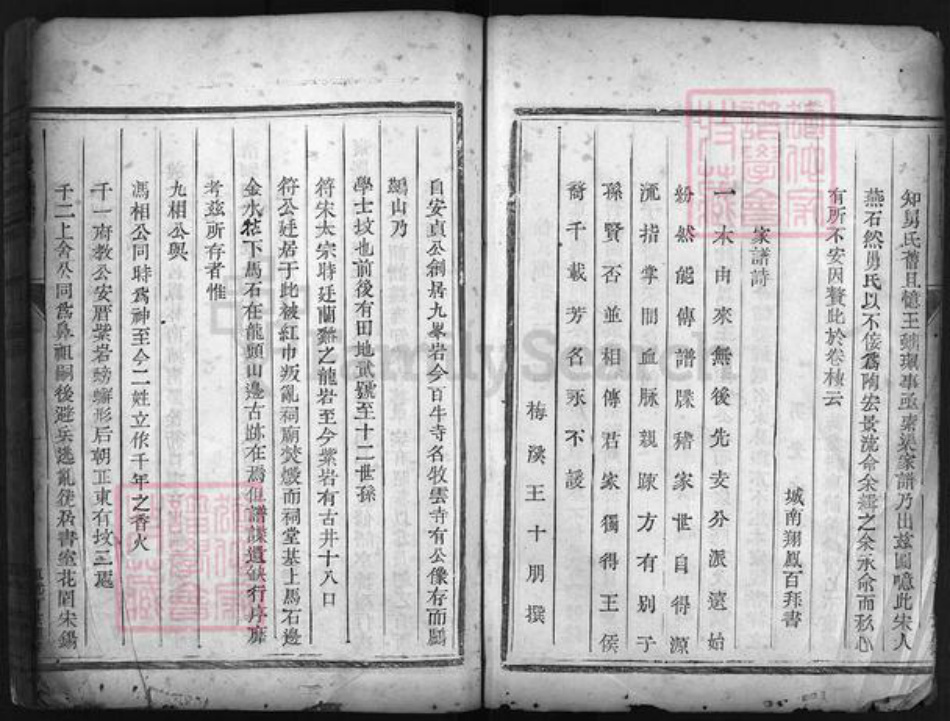 知舅氏舊且憶王 事亟素梁家譜乃出玆圖噫此朱人
燕石然勇氏以不佞爲陶宏景流命余緝之余承命而 心
有所不安因贅此於卷 云
城南翔鳳百拜書
家譜詩
一木由來無後先支分派遠始
紛然能傳譜牒稽家世自得源
流指掌間血脉親踈方有别子
孫賢否並相傳君家獨得王侯
裔千載芳名永不諼
梅溪王十朋撰
自安貞公創居九峯岩今百牛寺名牧雲寺有公像存而鵬
鵝山乃
學士坟也前後有田地貳號至十二世孫
符宋太宗時廷蘭 之龍岩至今紫岩有古井十八口
符公廷居于此被紅巾叛亂祠廟焚燬而祠堂基上馬石邊
金水 下馬石在龍頭山邊古跡在焉但譜諜遺缺行序靡
考兹所存者惟
九相公與
馮相公同時爲神至今二姓立 千年之香火
千一府教公安厝紫岩螃蠏形后朝正東有坟三
千二上舍公同爲鼻祖嗣後避兵逃亂徙居書室花園朱錫
FamilySearch